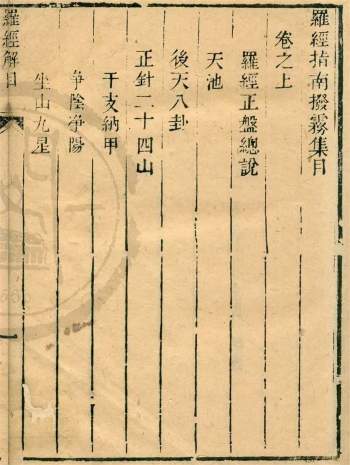 羅經指南撥霧集目
卷之上
羅經正盤總說
天池
後天八卦
正針二十四山
干支納甲
淨陰淨陽
坐山九星
羅經解目